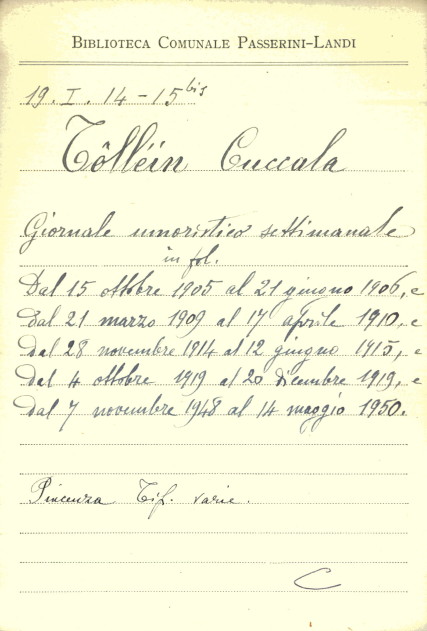 BIBLIOTECA COMUNALE PASSERINI-LANDI
19. I. 14-15 bis
Tôlléin Cuccala
Giornale umoristico settimanale
in fol.
Dal 15 ottobre 1905 al 21 giugno 1906, e
dal 21 marzo 1909 al 17 aprile 1910, e
dal 28 novembre 1914 al 12 giugno 1915, e
dal 4 ottobre 1919 al 20 dicembre 1919, e
dal 7 novembre 1948 al 14 maggio 1950.
Piacenza Tip. varie.
C